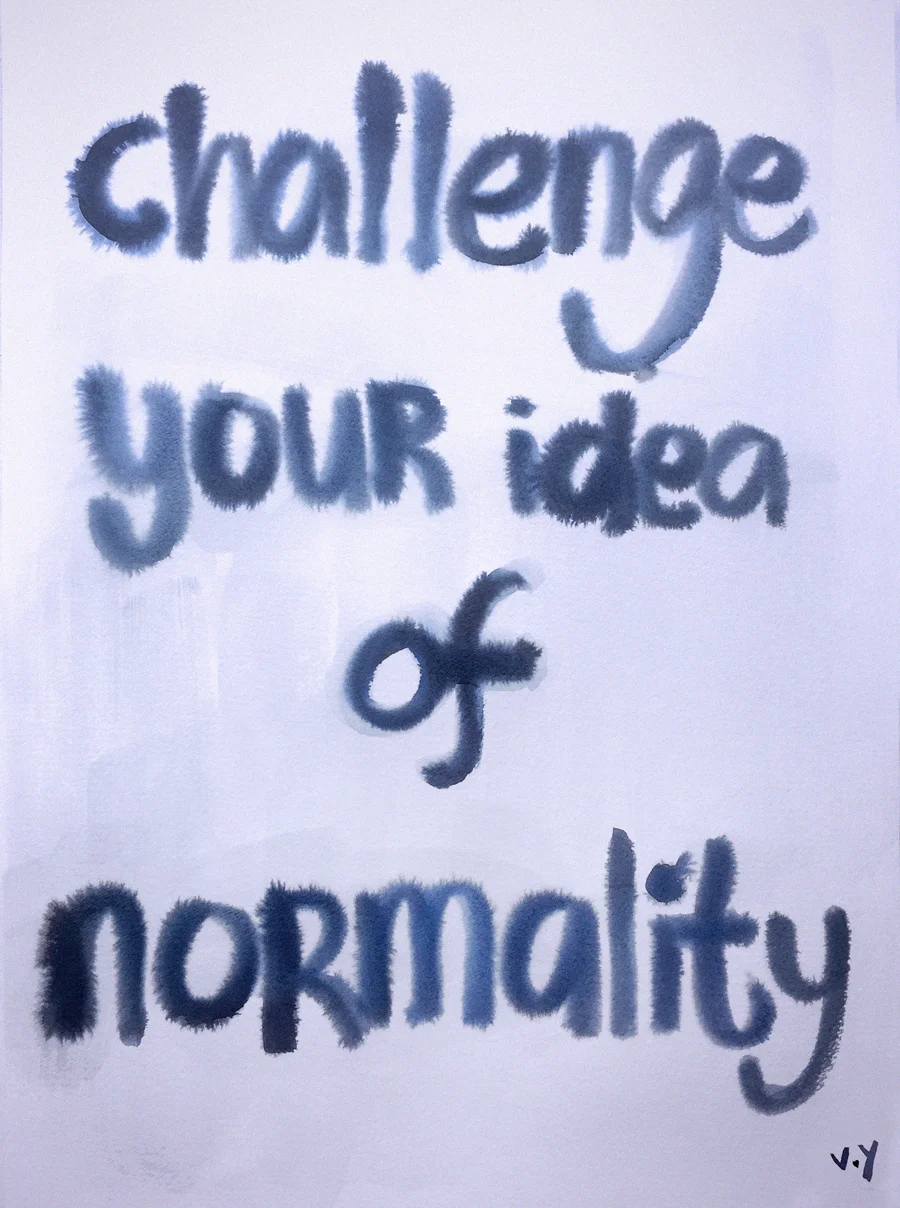 challenge
youR idea
of
noRmality
v.y